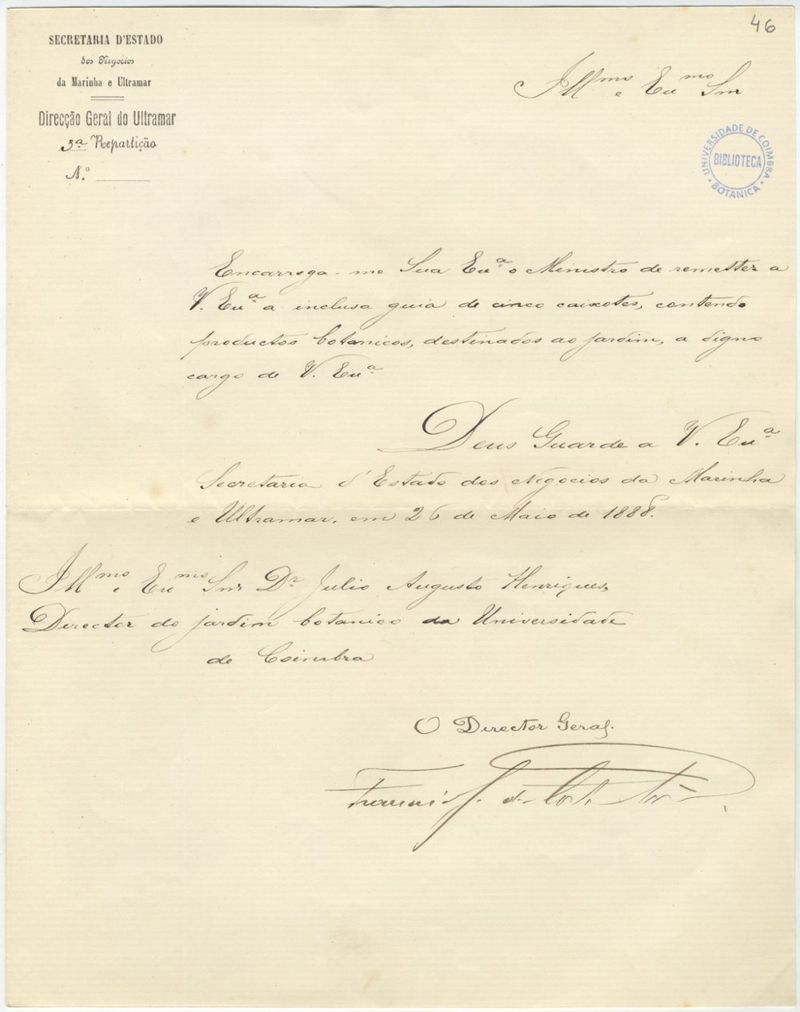 46
SECRETARIA D'ESTADO
dos Negocios
da Marinha e Ultramar
Direcção Geral do Ultramar
3ª Repartição
N.º
Ill.mo e Ex.mo Snr
UNIVERSIDADE DE COIMBRA
BIBLIOTECA
BOTANICA
Encarrega-me Sua Ex.ª o Ministro de remetter a
V. Ex.ª a inclusa guia de cinco caixotes, contendo
productos botanicos, destinados ao jardim, a digno
cargo de V. Ex.ª
Deus Guarde a V. Ex.ª
Secretaria d'Estado dos Negocios da Marinha
e Ultramar, em 26 de Maio de 1888.
Ill.mo e Ex.mo Snr Dr Julio Augusto Henriques,
Director do jardim botanico da Universidade
de Coimbra
O Director Geral.